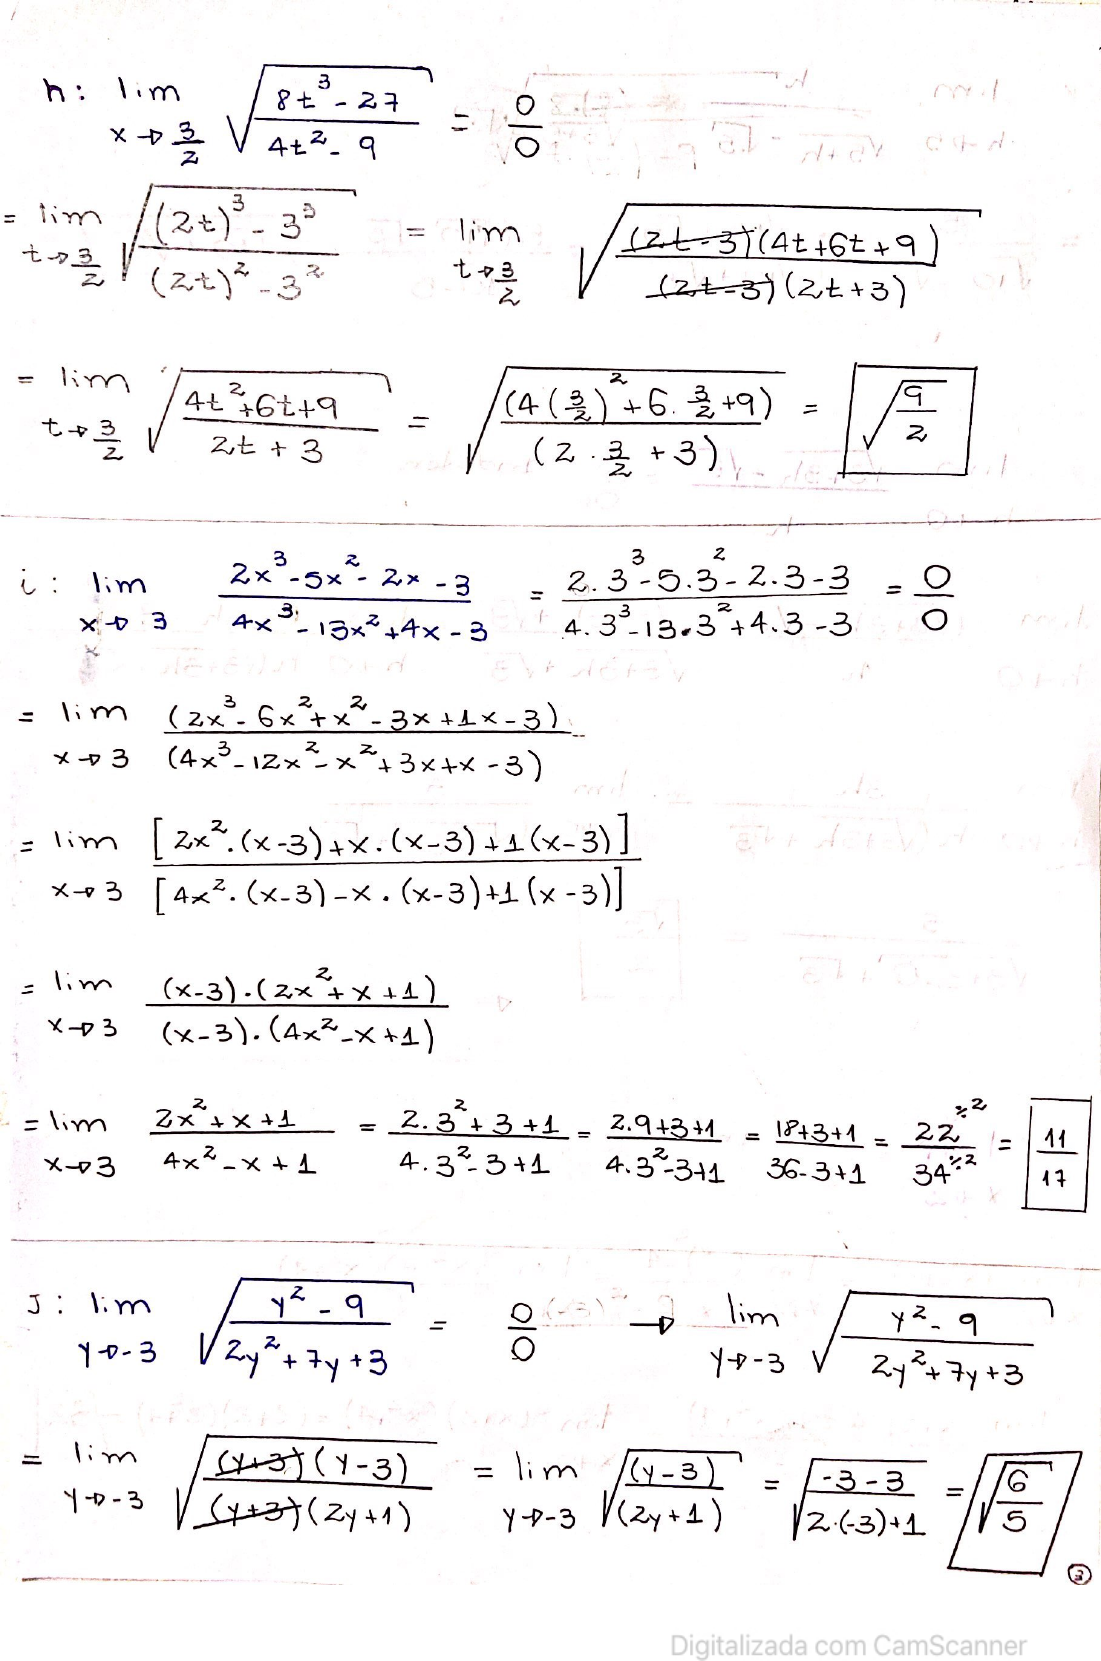 h: lim x→3/2 √((8t³ - 27)/(4t² - 9)) = 0/0
= lim t→3/2 √(((2t)³ - 3³)/((2t)² - 3²)) = lim t→3/2 √(((2t-3)(4t+6t+9))/((2t-3)(2t+3)))
= lim t→3/2 √((4t²+6t+9)/(2t + 3)) = √((4(3/2)²+6.3/2+9)/(2.3/2 + 3)) = √(9/2)
i: lim x→3 (2x³-5x²-2x-3)/(4x³-13x²+4x-3) = (2.3³-5.3²-2.3-3)/(4.3³-13.3²+4.3-3) = 0/0
= lim x→3 (2x³-6x²+x²-3x+1x-3)/(4x³-12x²-x²+3x+x-3)
= lim x→3 [2x².(x-3)+x.(x-3)+1(x-3)]/[4x².(x-3)-x.(x-3)+1(x-3)]
= lim x→3 (x-3).(2x²+x+1)/(x-3).(4x²-x+1)
= lim x→3 (2x²+x+1)/(4x²-x+1) = (2.3²+3+1)/(4.3²-3+1) = (2.9+3+1)/(4.3²-3+1) = (18+3+1)/(36-3+1) = 22÷2/34÷2 = 11/17
J: lim y→-3 √((y²-9)/(2y²+7y+3)) = 0/0 → lim y→-3 √((y²-9)/(2y²+7y+3))
= lim y→-3 √(((y+3)(y-3))/((y+3)(2y+1))) = lim y→-3 √((y-3)/(2y+1)) = √((-3-3)/(2.(-3)+1)) = √(6/5)
3
Digitalizada com CamScanner